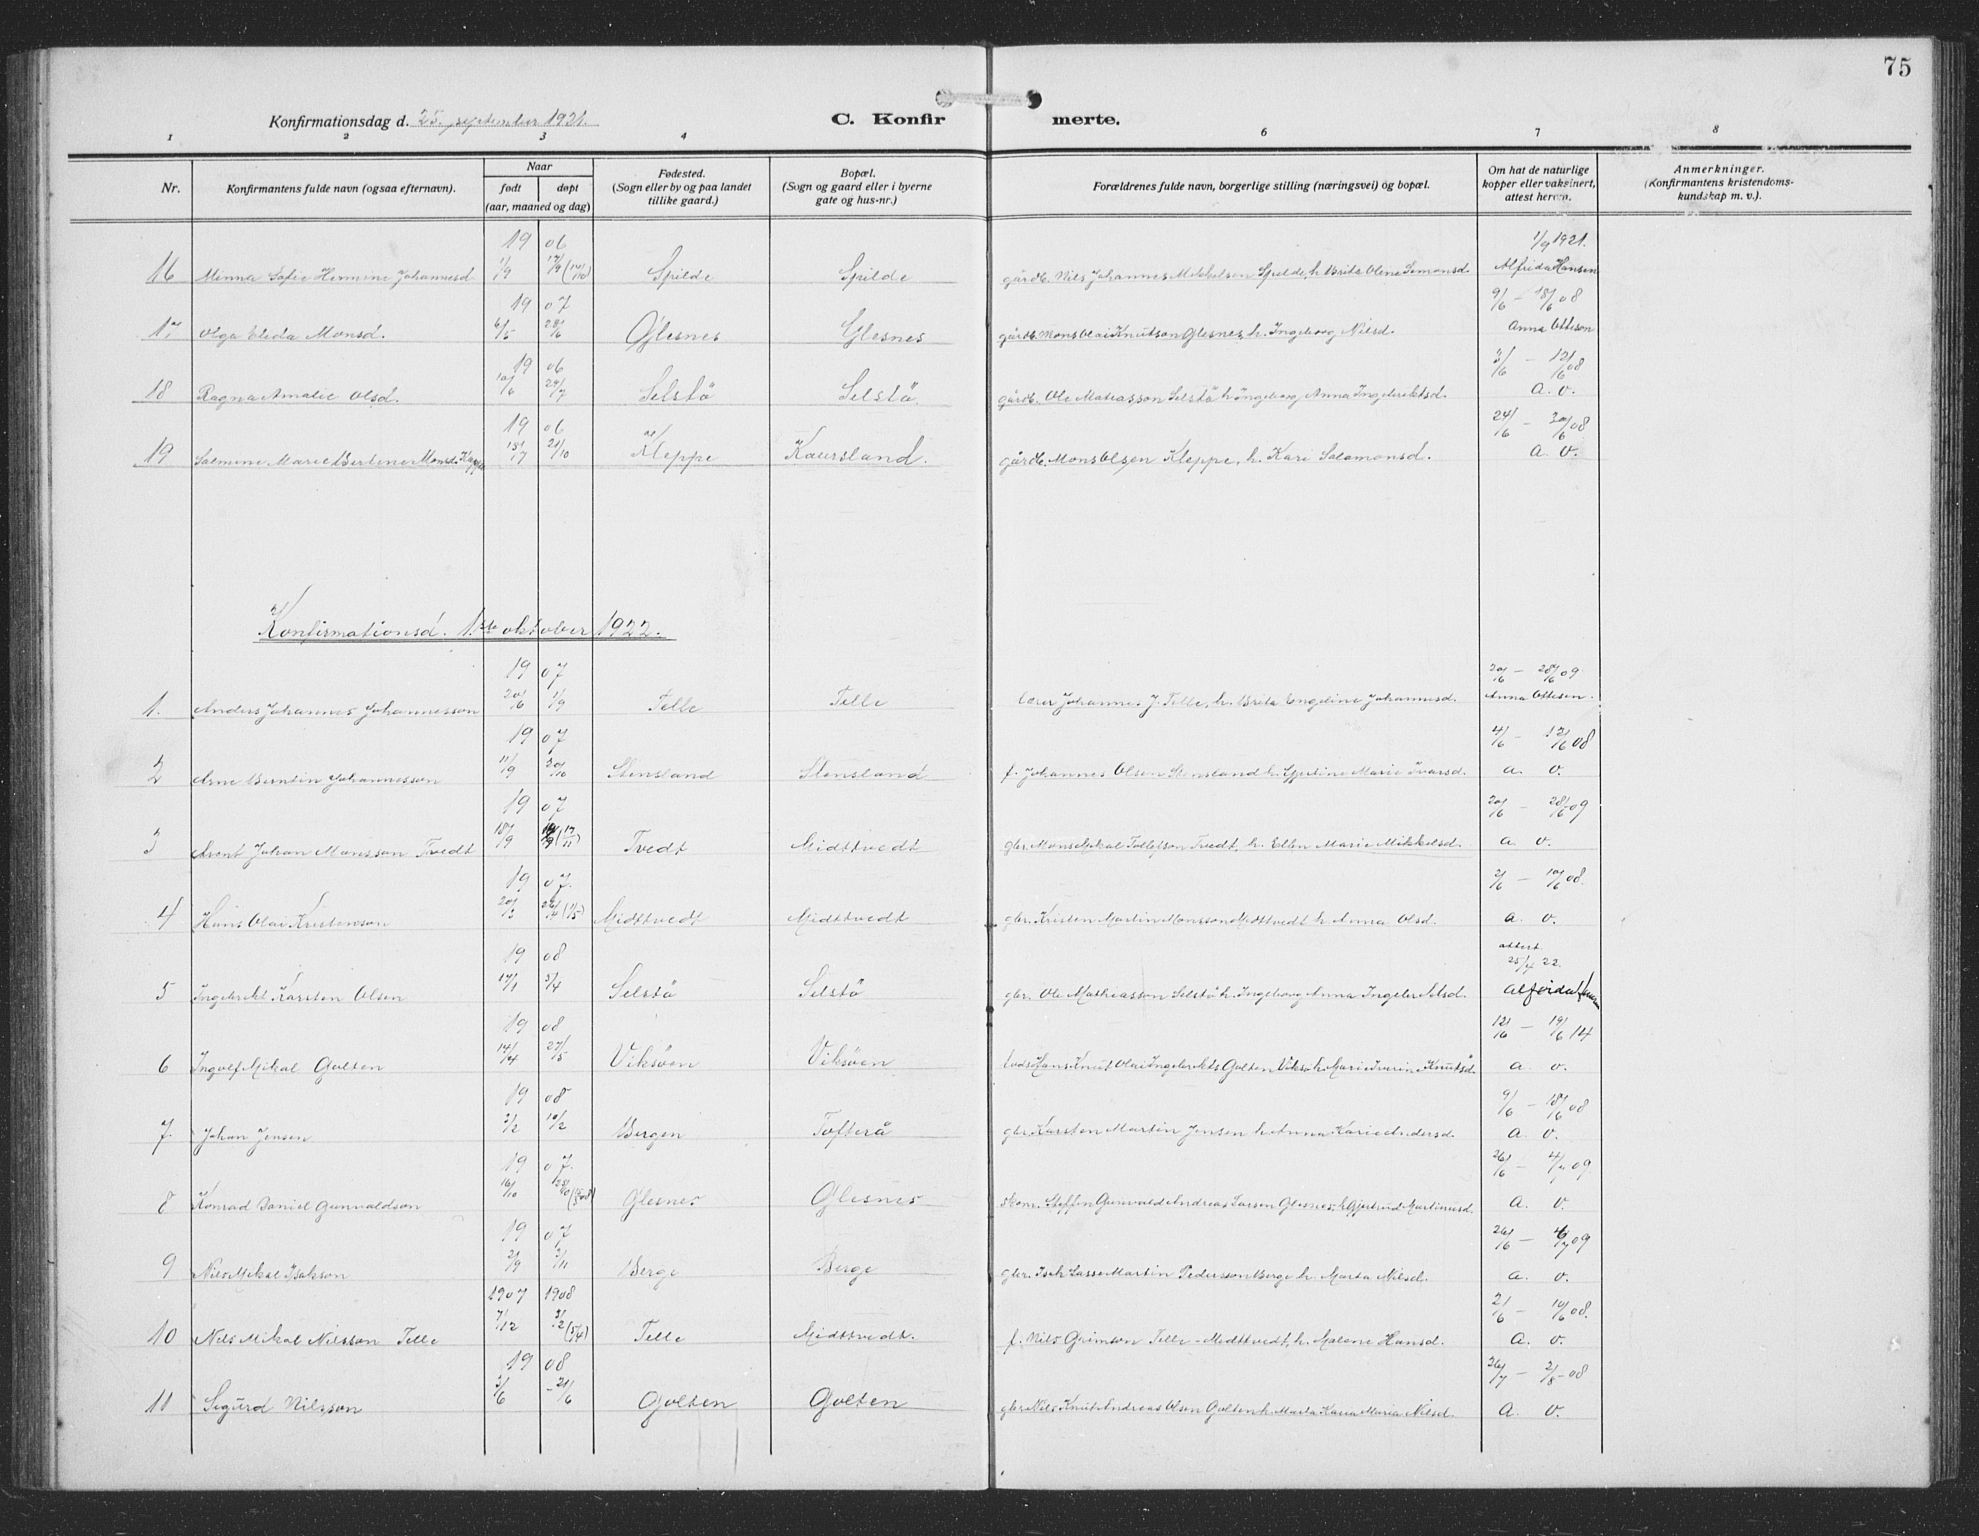 75
Konfirmationsdag d. 25. september 1921.
C. Konfirmerte.
1 2 3 4 6 7 8
Nr.
Konfirmantens fulde navn (ogsaa efternavn).
Naar
født døpt
(aar, maaned og dag)
Fødested.
(Sogn eller by og paa landet
tillike gaard.)
Bopæl.
(Sogn og gaard eller i byerne
gate og hus-nr.)
Forældrenes fulde navn, borgerlige stilling (næringsvei) og bopæl.
Om hat de naturlige
kopper eller vaksinert,
attest herom.
Anmerkninger.
(Konfirmantens kristendoms-
kundskap m. v.).
19 06 1/9 1921.
16 Minna Sofie Hermine Johannesd 1/9 17/9 (14/10) Spilde Spilde gårdb. Nils Johannes Mikkelsen Spilde, h. Brita Oline Simonsd. Alfrida Hansen
19 07 9/6 — 18/6 08
17 Olga Elida Monsd. 6/5 28/6 Glesnes Glesnes gårdb. Mons Olai Knutson Glesnes, h. Ingeborg Nilsd. Anna Ottesen
19 06 3/6 — 12/6 08
18 Ragna Amalie Olsd. 10/6 29/7 Selstö Selstö gårdb. Ole Matiasson Selstö h Ingeborg Anna Ingebriktsd. a. v.
19 06 24/6 — 30/6 08
19 Salmine Marie Bertine Monsd. 21/10 Kleppe Kaursland. gårdb. Mons Olsen Kleppe, h. Kari Salamonsd. a. v.
Konfirmationsd. 1.ste oktober 1922.
19 07 20/6 — 28/6 09
1. Anders Johannes Johannesson 20/6 1/9 Telle Telle lærer Johannes J. Telle, h. Brita Engeline Johannesd. Anna Ottesen.
19 07 4/6 — 12/6 08
2 Arne Berntin Johannesson 11/9 20/10 Stensland Stensland f. Johannes Olsen Stensland h. Gjertine Marie Ivarsd. a. v.
19 07 20/6 — 28/6 09
3 Arent Johan Monsson Tvedt 18/9 (17/11) Tvedt Midttvedt gbr. Mons Mikal Tollefson Tvedt, h. Ellen Marie Mikkelsd. a. v.
19 07. 2/6 — 10/6 08.
4 Hans Olai Kristenson 20/3 Midttvedt Midttvedt gbr. Kristen Martin Monsson Midttvedt h Anna Olsd. a. v.
19 08 attest. 25/4 22.
5 Ingebrikt Karsten Olsen 17/1 5/4 Selstö Selstö gbr. Ole Mathiasson Selstö h. Ingeborg Anna Ingebriktsd. Alfrida Hansen
19 08 12/6 — 19/6 14
6 Ingolf Mikal Golten 14/4 27/5 Viksöen Viksöen lods Hans Knut Olai Ingebrikts Golten Viksö h. Marie Knutsd. a. v.
19 08 9/6 — 18/6 08
7. Johan Jensen 2/2 10/2 Bergen Tofterå gbr. Karsten Martin Jensen h Anna Karie Andersd. a. v.
19 07. 26/6 — 4/7 09
8 Konrad Daniel Gunvaldson 16/10 Glesnes Glesnes skom. Steffen Gunvald Andreas Larsen Glesnes, h. Gjertrud Martinusd. a. v.
19 07 26/6 — 4/7 09
9 Nils Mikal Isakson 2/9 3/11 Berge Berge gbr. Isak Lasse Martin Pedersson Berge h. Marta Nilsd. a. v.
1907 1908 2/6 — 10/6 08.
10 Nils Mikal Nilsson Telle 7/12 2/2 (5/4) Telle Midttvedt. f. Nils Grimson Telle - Midttvedt, h. Malene Hansd. a. v.
19 08 26/7 — 2/8 08
11 Sigurd Nilsson 3/6 - 21/6 Golten Golten gbr. Nils Knut Andreas Olsen Golten h. Marta Karia Maria Nilsd. a. v.